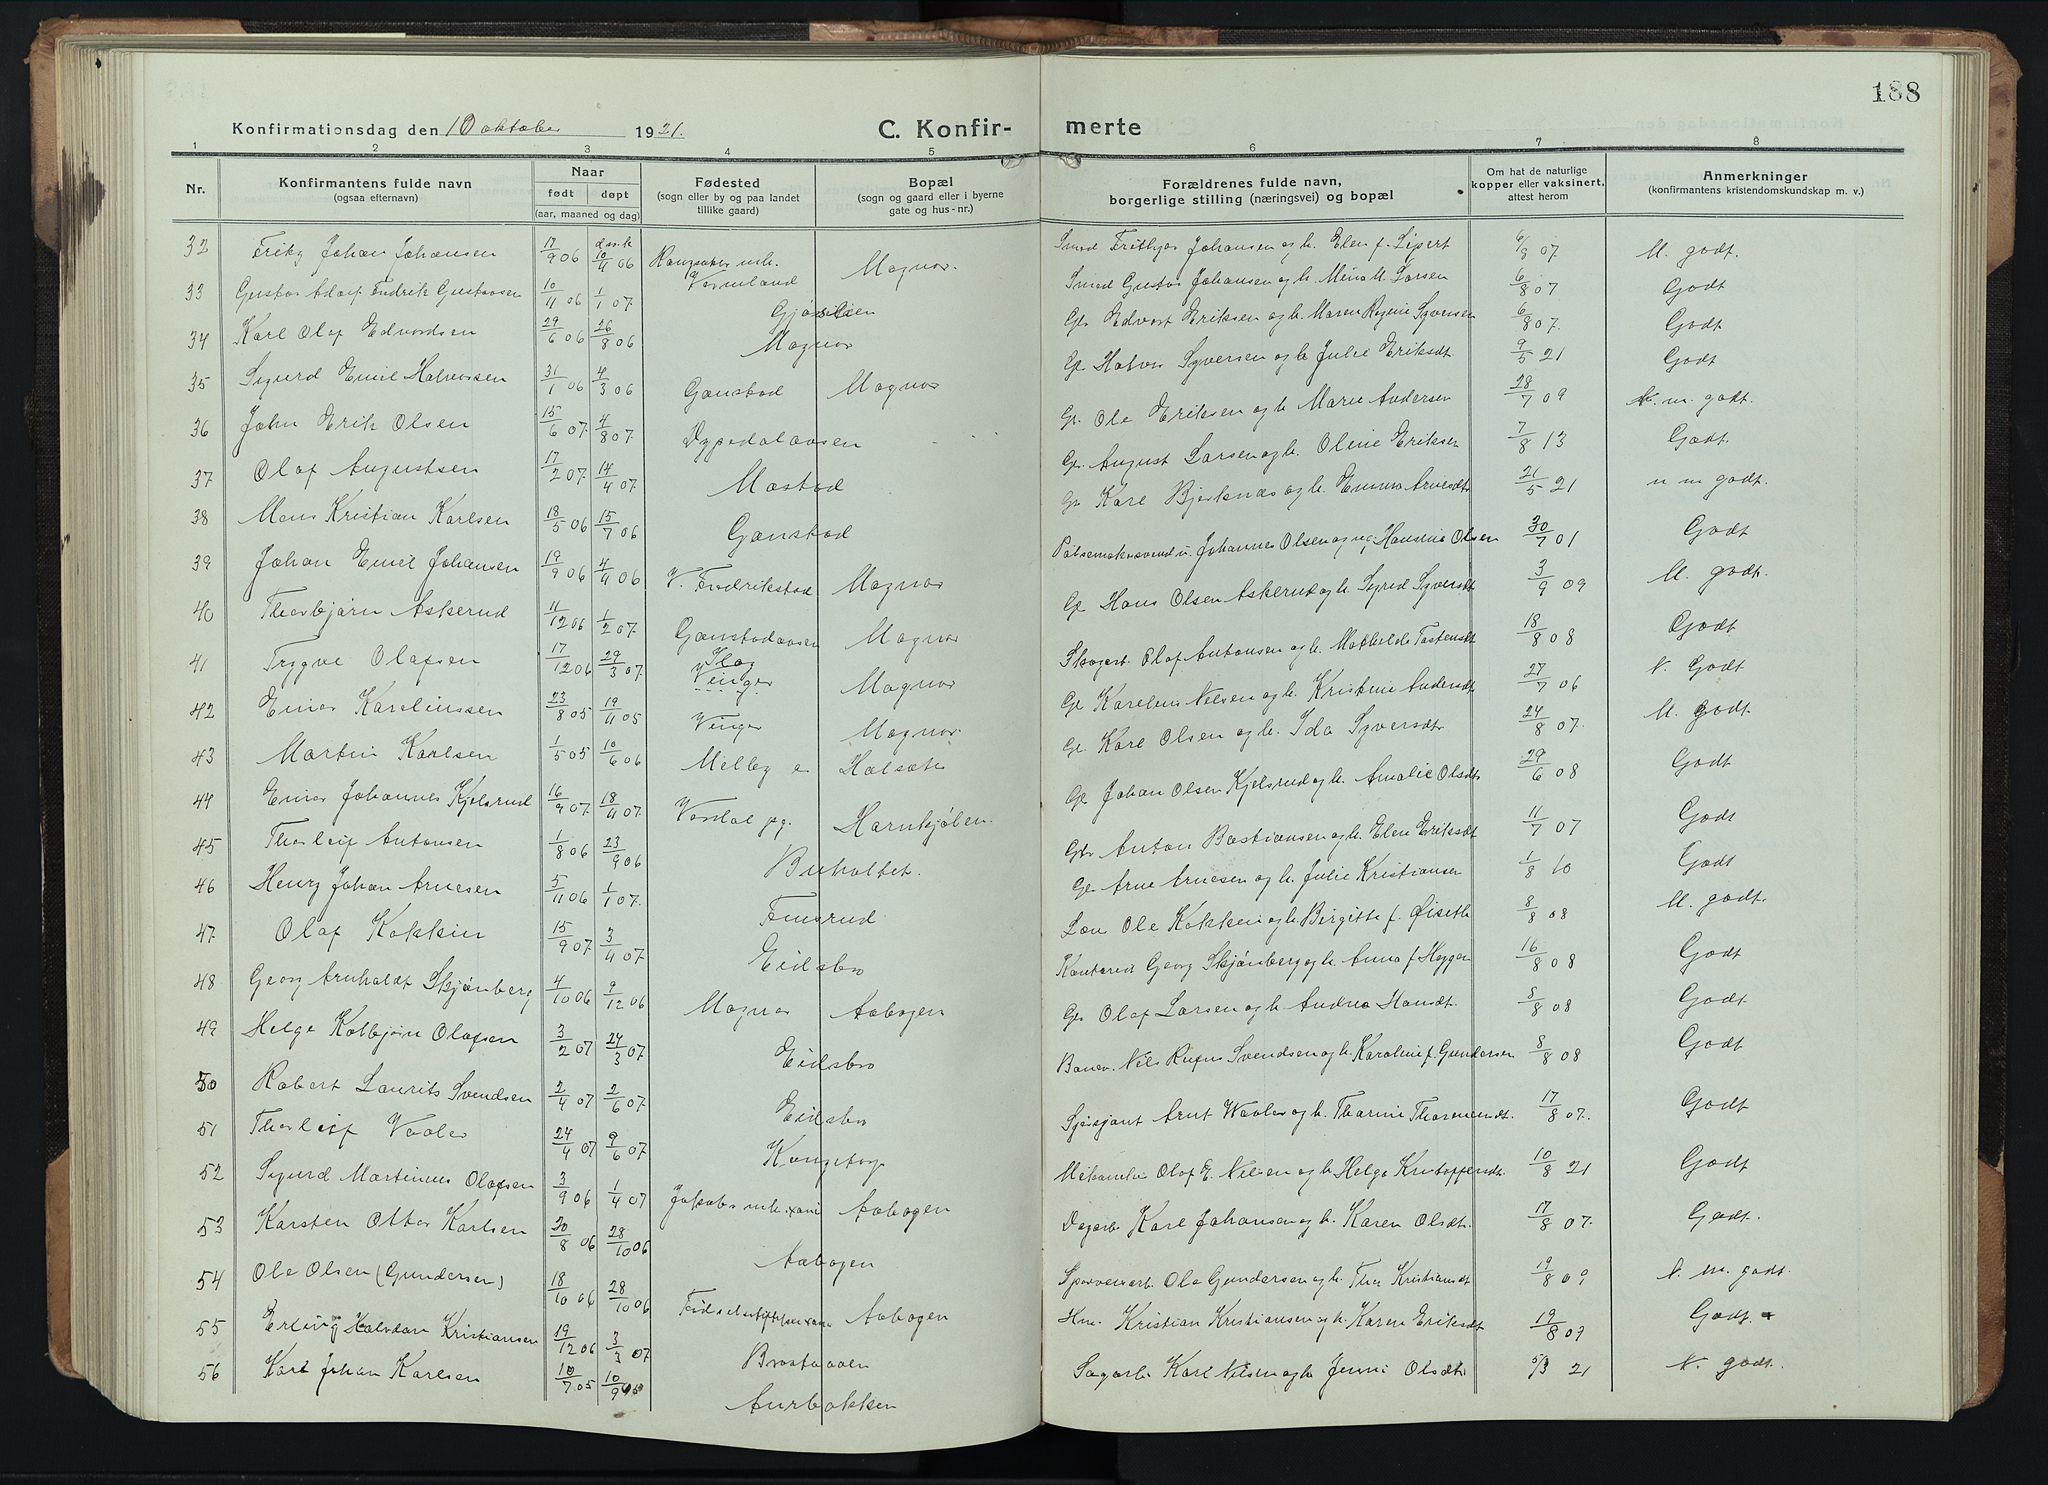 188
Konfirmationsdag den 10 oktober 1921. C. Konfir- merte
1 2 3 4 5 6 7 8
Nr. Konfirmantens fulde navn (ogsaa efternavn) Naar født døpt (aar, maaned og dag) Fødested (sogn eller by og paa landet tillike gaard) Bopæl (sogn og gaard eller i byerne gate og hus-nr.) Forældrenes fulde navn, borgerlige stilling (næringsvei) og bopæl Om hat de naturlige kopper eller vaksinert, attest herom Anmerkninger (konfirmantens kristendomskundskap m. v.)
32 Johan Johansen 17/9 06 10/4 06 Magnor. Smed Johansen og h. Elen f. Lipert 6/8 07 M. godt.
33 Gustav Adolf Fredrik Gustavsen 10/11 06 1/1 07. Værmland Smed Gustav Johansen og h. Mina M. Larsen 6/8 07 Godt
34 Karl Olaf Edvardsen 29/6 06 26/8 06 Magnor Edvart Eriksen og h. Maren Regine Syversen 6/8 07. Godt
35 Sigurd Emil Halvorsen 31/1 06 4/3 06 Gaustad Magnor Halvor Syversen og h. Julie Eriksdt. 9/5 21 Godt
36 John Erik Olsen 15/6 07. 4/8 07. Dypedalaasen G. Ole Eriksen og h. Marie Andersen 28/7 09 N. m. godt.
37 Olaf Augustsen 17/2 07. 14/4 07. Mastad August Larsen og h. Oline Eriksen 7/8 13 Godt.
38 Mons Kristian Karlsen 18/5 06 15/7 06 Gaustad Karl Bjerknæs og h. Emma Arnesdt. 21/5 21 n m godt.
39 Johan Emil Johansen 19/9 06 4/11 06 V. Fredrikstad Magnor Pølsemakersvend u. Johannes Olsen og Hansine Olsen 30/7 01 Godt
40 Thorbjørn Askerud 11/12 06 1/2 07. Gaustadaasen Magnor Hans Olsen Askerud og h. Sigrid Syversdt 3/9 09 M. godt.
41 Trygve Olafsen 17/12 06 29/3 07. Vinger Magnor Skogarb. Olaf Antonsen og h. Mathilde Tostensdt. 18/8 08 Godt
42 Einar Karelinssen 23/8 05 19/11 05 Vinger Magnor. Karelius Nilsen og h. Kristine Andersdt 27/7 06 N. Godt
43 Martin Karlsen 1/5 05 10/6 06 Melby Halsæt Karl Olsen og h. Ida Syversdt 24/8 07. M. godt.
44 Einar Johannes Kjelsrud 16/9 07. 18/11 07. Harnkjølen. Johan Olsen Kjelsrud og h. Amalie Olsdt. 29/6 08 Godt
45 Thorleif Antonsen 1/8 06 23/9 06 Buholtet. Anton Bastiansen og h. Elen Eriksdt 11/7 07 Godt
46 Henry Johan Arnesen 5/11 06 1/1 07. Finsrud Arne Arnesen og h. Julie Kristiansen 1/8 10 Godt
47 Olaf Kokkin 15/9 07. 3/11 07. Eidsbro Ole Kokken og h. Birgitte f. Øiseth 8/8 08 M. godt.
48 Georg Arnholdt Skjønberg 4/10 06 9/12 06 Magnor Aabogen Georg Skjønberg og h. Anna f. Heggen 16/8 08 Godt
49 Helge Kolbjørn Olafsen 3/2 07 24/3 07. Eidsbro Olaf Larsen og h. Andrea Hansdt. 8/8 08 Godt
50 Robert Laurits Svendsen 2/4 07 2/6 07. Eidsbro Banev. Nils Rufus Svendsen og h. Karoline f. Gundersen 8/8 08 Godt
51 Thorleif Vaaler 24/4 07 9/6 07. Sjersjant Arnt Waaler og h. Thorine 17/8 07. Godt
52 Sigurd Martinius Olafsen 3/9 06 1/4 07 Aabogen Olaf E. Nilsen og h. Helga Kristoffersdt. 10/8 21 Godt
53 Karsten Ottar Karlsen 20/8 06 28/10 06 Aabogen Dagarb. Karl Johansen og h. Karen Olsdt. 17/8 07. Godt.
54 Ole Olsen (Gundersen) 18/10 06 28/10 06 Fødselsstiftelsen Aabogen Ole Gundersen og h. Thea Kristiansdt 19/8 09 N. m. godt.
55 Erling Halvdan Kristiansen 19/12 06 3/3 07 Kristian Kristiansen og h. Karen Eriksdt 19/8 09 Godt.
56 Karl Johan Karlsen 10/7 05 10/9 Aurbakken Sagarb. Karl Nilsen og h. Jenni Olsdt. 5/3 21 N. godt.